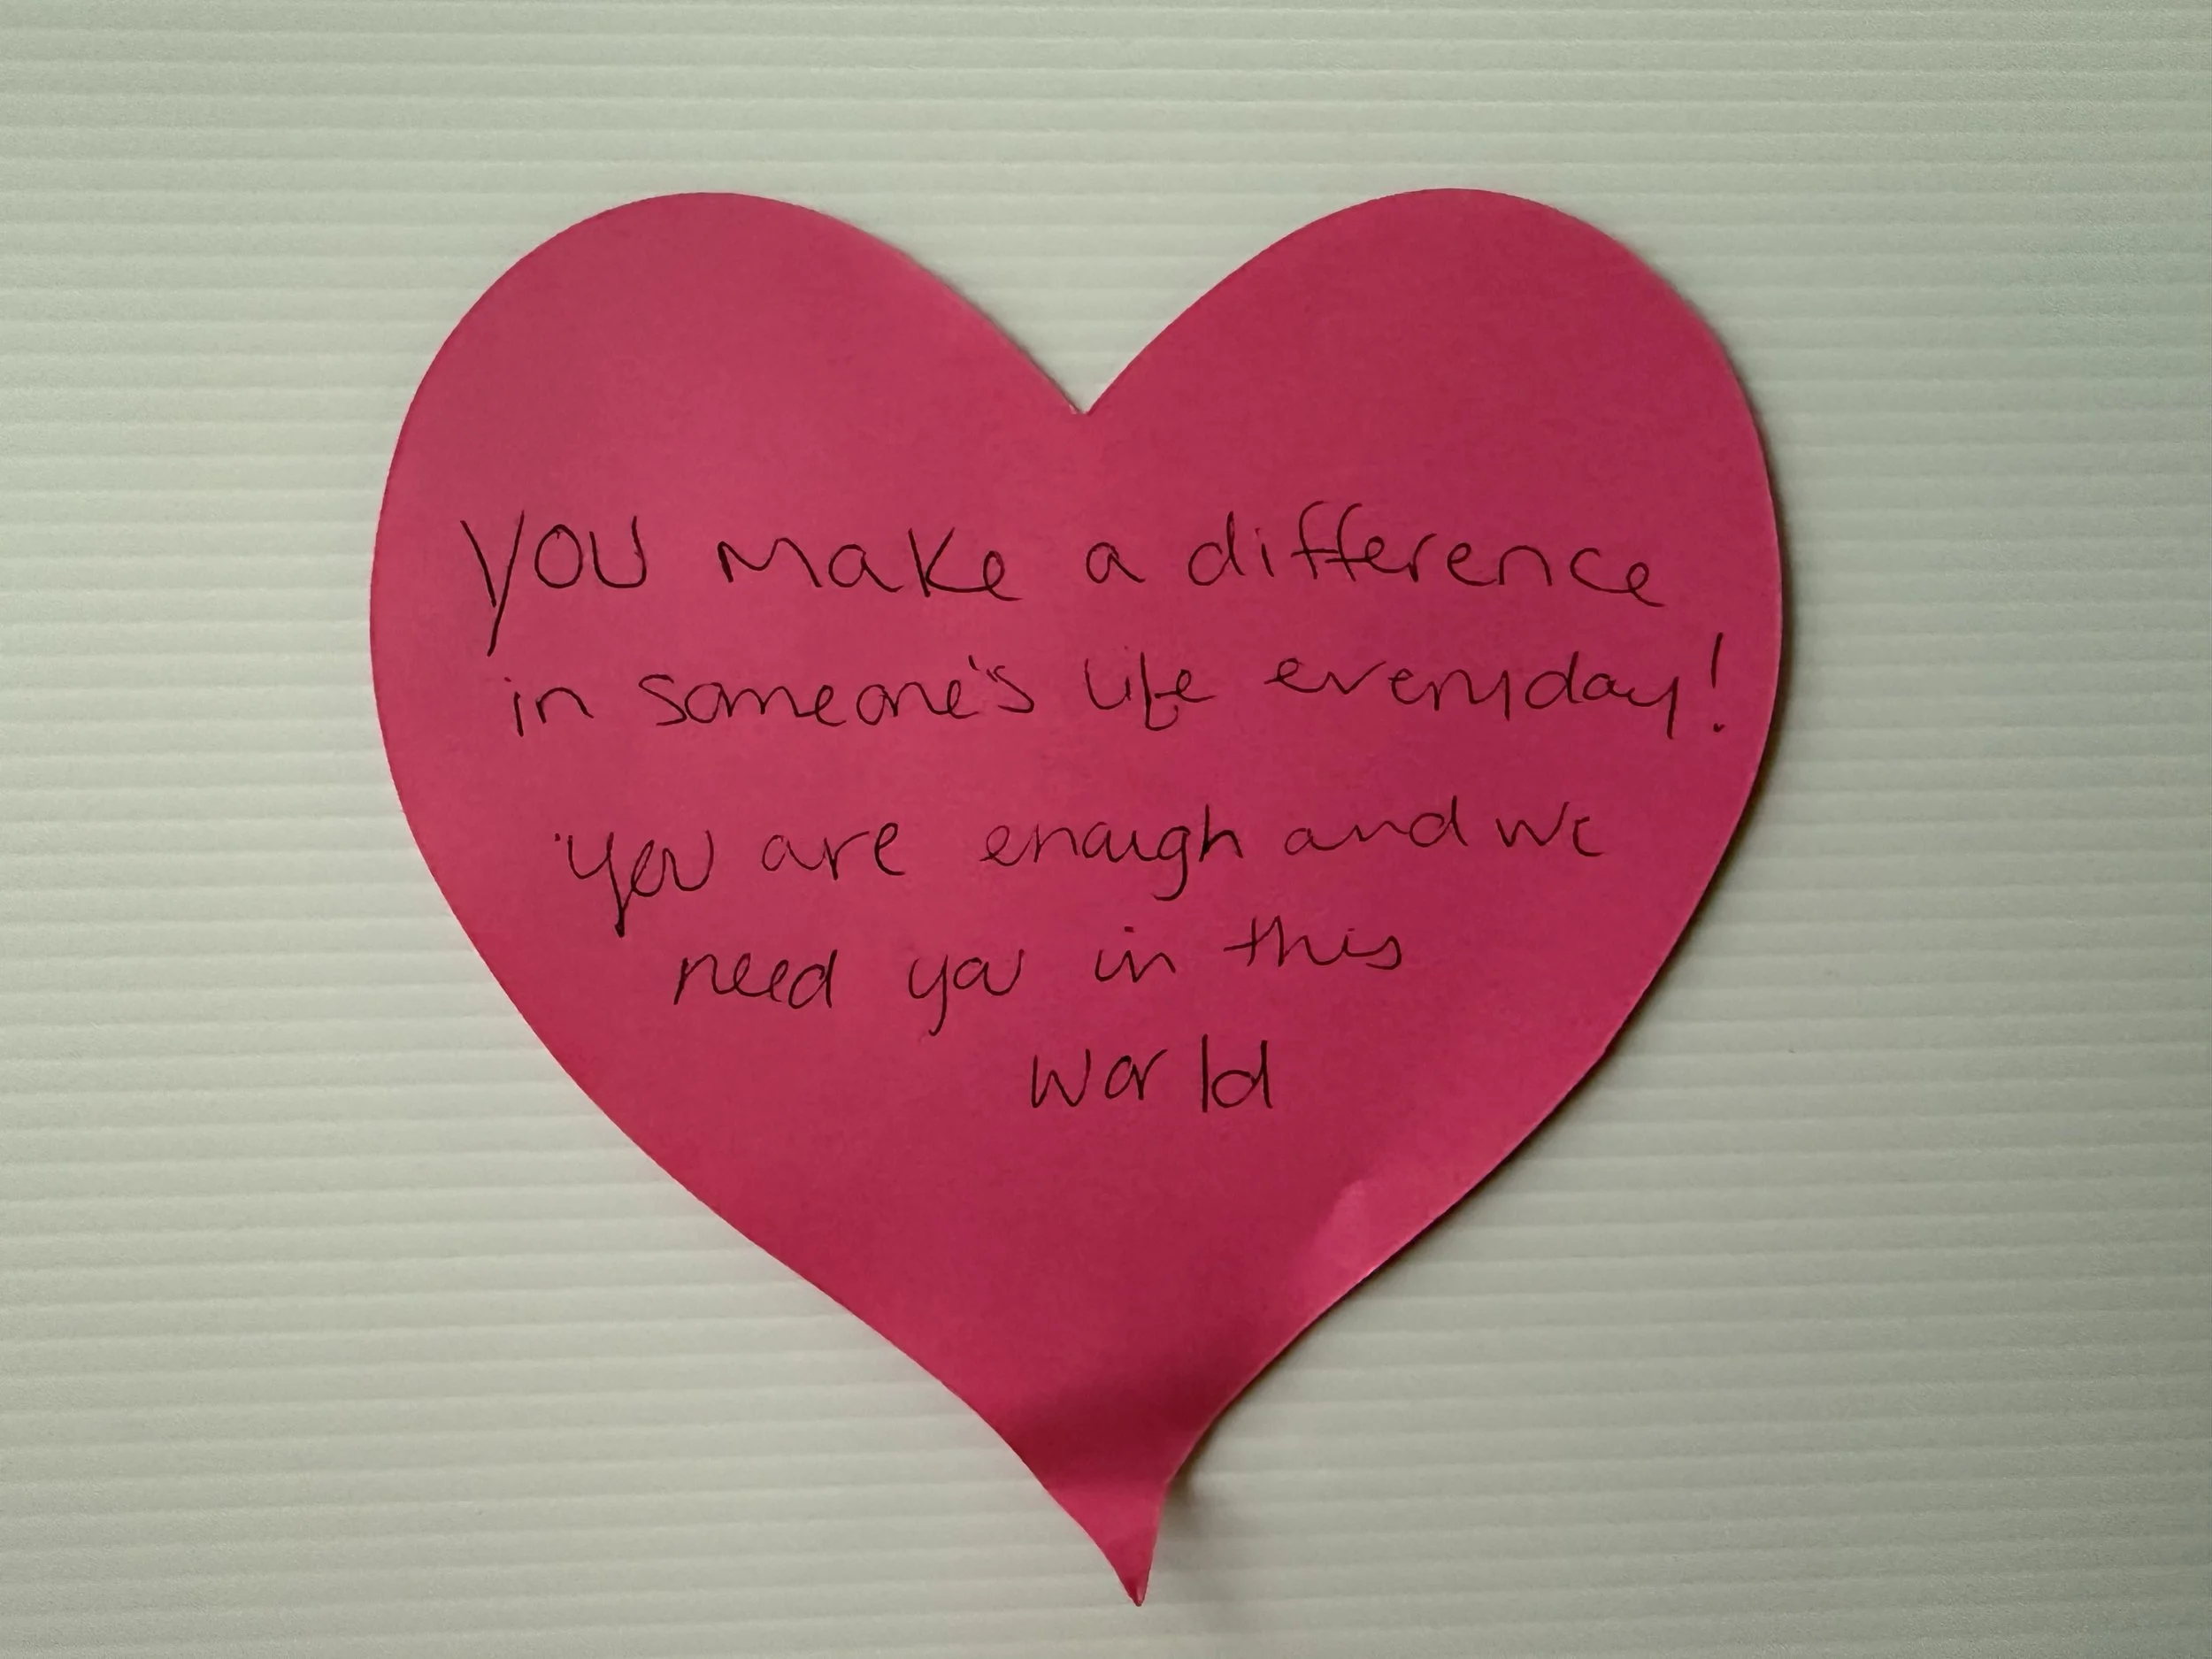 You make a difference
in someone's life everyday!
You are enough and we
need you in this
world